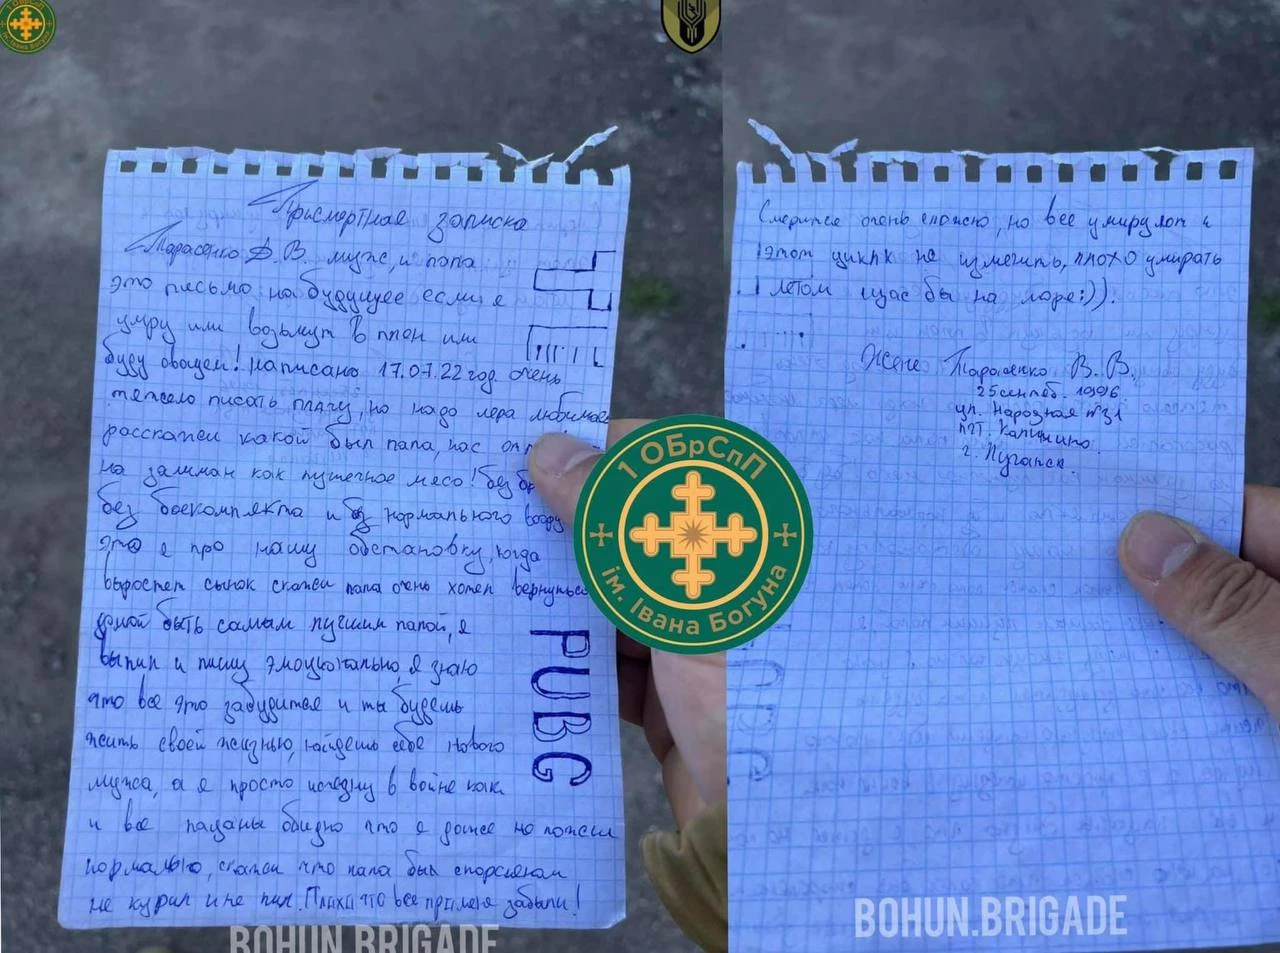 Присмертная записка
Тарасенко Д. В. муж, и папа
это письмо на будущее если я
умру или возьмут в плен или
буду овощем! написано 17.07.22 год. очень
тяжело писать плачу, но надо лера любимая
расскажи какой был папа, нас
на залман как пушечное мясо! без
без боекомплекта и без нормального
это я про нашу обстановку, когда
выростет сынок скажи папа очень хотел вернуться
домой быть самым лучшим папой, я
выпил и пишу эмоцыонально, я знаю
что все это забудится и ты будешь
жить своей жизнью, найдешь себе нового
мужа, а я просто исчезну в войне как
и все пацаны обидно что я даже не пожил
нормально, скажи что папа был спорсменом
не курил и не пил. Плоха что все про меня забыли!
PUBG
Смерится очень сложно, но все умирулот и
этот цикл не изменить, плохо умирать
летом щас бы на море:)).
Жене Тарасенко В. В.
25 сентяб. 1996
ул. Народная №31
пгт. Калинино
г. Луганск.
1 ОБрСпП
ім. Івана Богуна
BOHUN.BRIGADE
BOHUN.BRIGADE